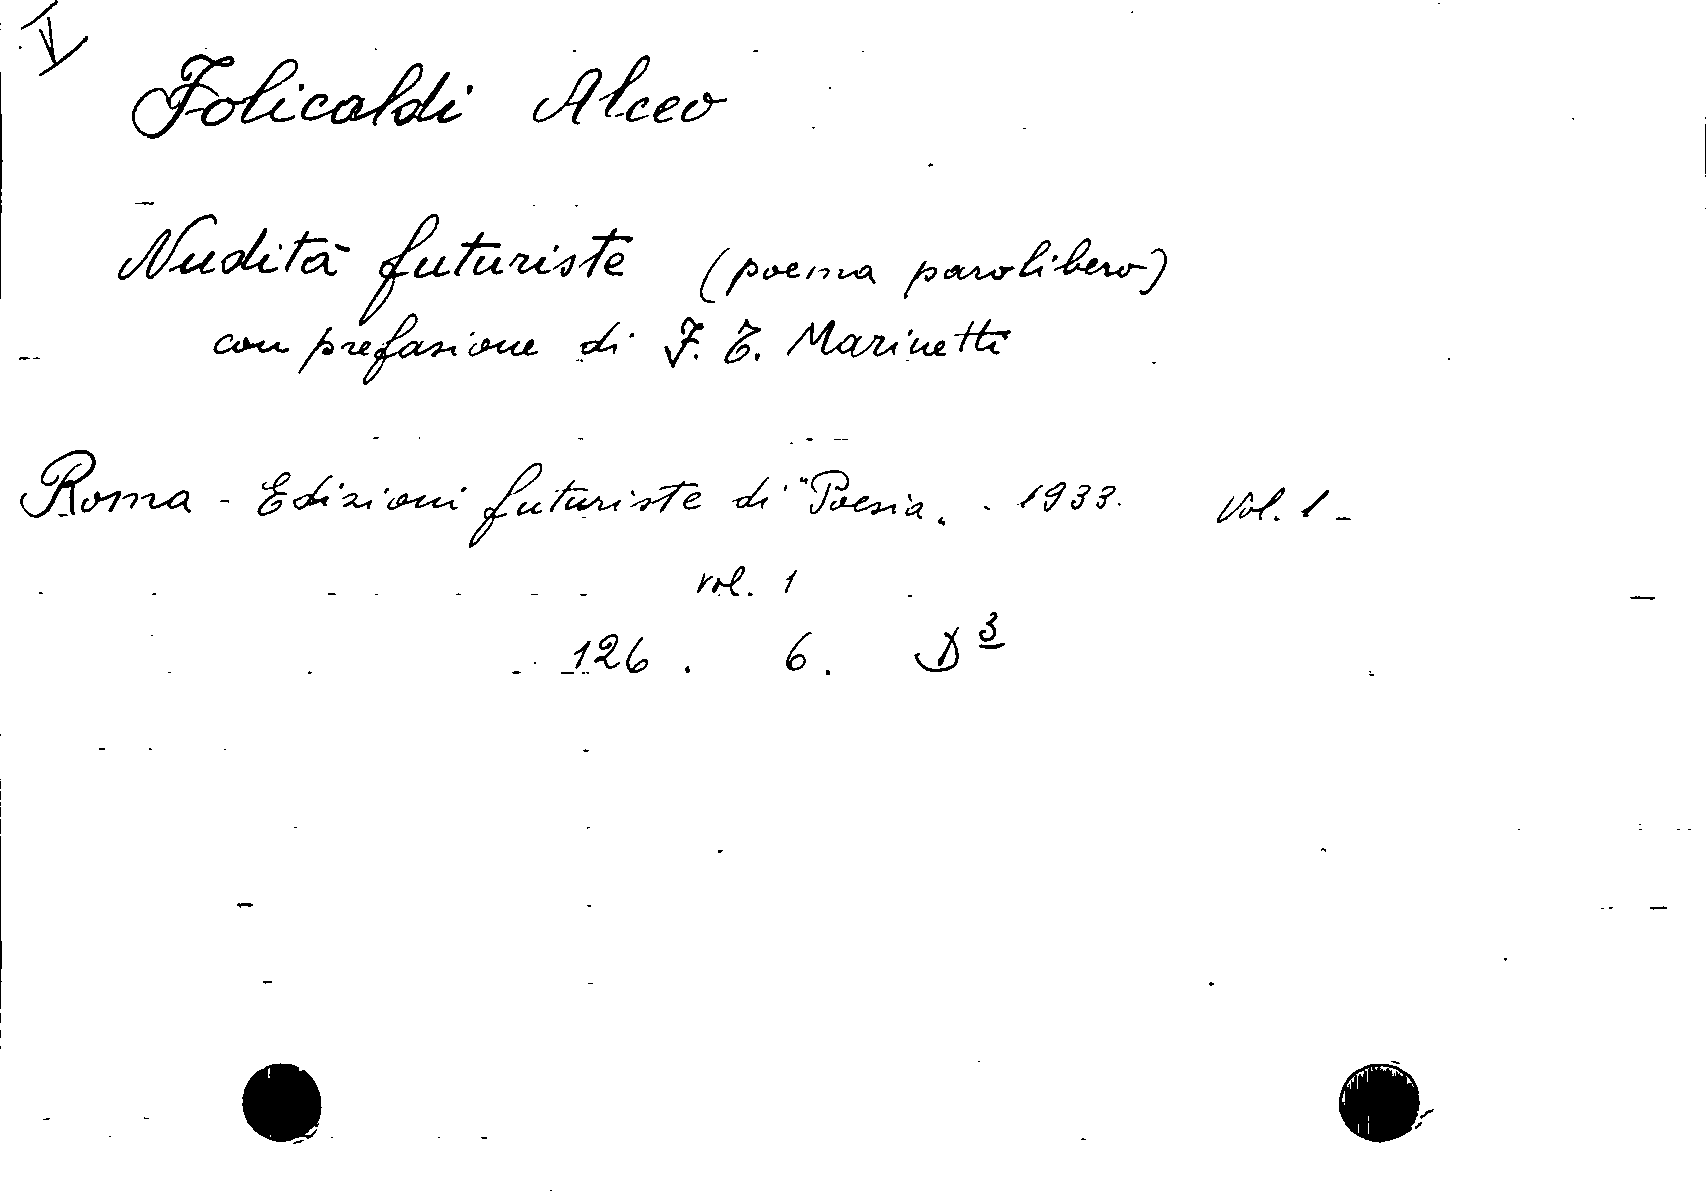 V
Folicaldi Alceo
Nudità futuriste (poema parolibero)
con prefazione di F. T. Marinetti
Roma - Edizioni futuriste di "Poesia„ - 1933. Vol. 1 -
vol. 1
126 . 6. D 3